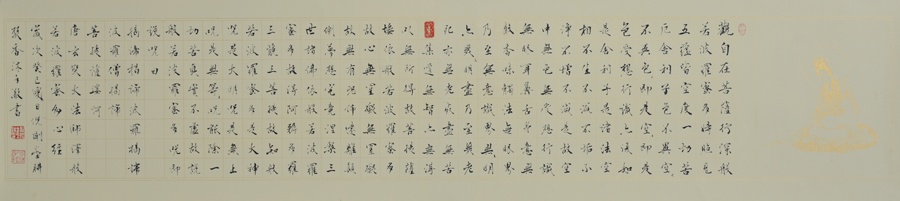 觀自在菩薩行深般
若波羅蜜多時照見
五蘊皆空度一切苦
厄舍利子色不異空
空不異色色即是空空即是
色受想行識亦復如
是舍利子是諸法空
相不生不滅不垢不
淨不增不減是故空
中無色無受想行識
無眼耳鼻舌身意無
色聲香味觸法無眼界
乃至無意識界無無明
亦無無明盡乃至無老
死亦無老死盡無苦
集滅道無智亦無得
以無所得故菩提薩
埵依般若波羅蜜多
故心無罣礙無罣礙
故無有恐怖遠離顛
倒夢想究竟涅槃三
世諸佛依般若波羅
蜜多故得阿耨多羅
三藐三菩提故知般
若波羅蜜多是大神
咒是大明咒是無上
咒是無等等咒能除一
切苦真實不虛故說
般若波羅蜜多咒即
說咒曰
揭諦揭諦波羅揭諦
波羅僧揭諦
菩提薩婆訶
唐玄奘大法師譯般
若波羅蜜多心經
歲次癸巳夏日
書